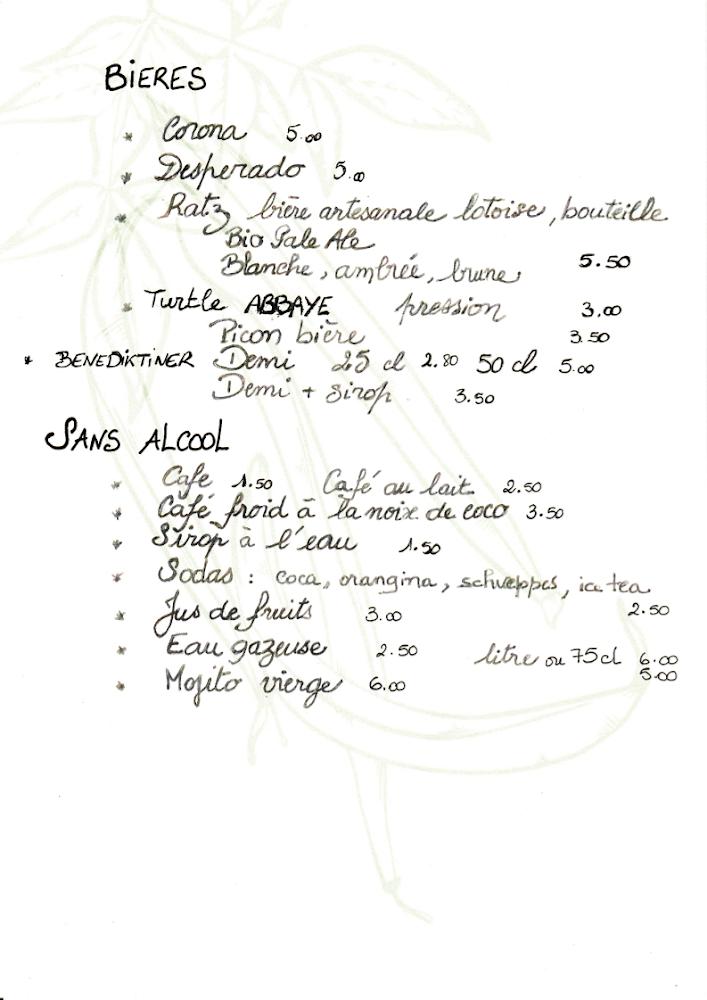 BiERES
* Corona 5.00
* Desperado 5.00
* Ratz bière artesanale lotoise, bouteille
Bio Pale Ale
Blanche, ambrée, brune 5.50
* Turtle ABBAYE pression 3.00
Picon bière 3.50
* BENEDiKTiNER Demi 25 cl 2.80 50 cl 5.00
Demi + sirop 3.50
SANS ALCOOL
* Cafe 1.50 Café au lait 2.50
* Café froid à la noix de coco 3.50
* Sirop à l'eau 1.50
* Sodas : coca, orangina, schweppes, ice tea
2.50
* Jus de fruits 3.00
* Eau gazeuse 2.50 litre ou 75 cl 6.00
5.00
* Mojito vierge 6.00